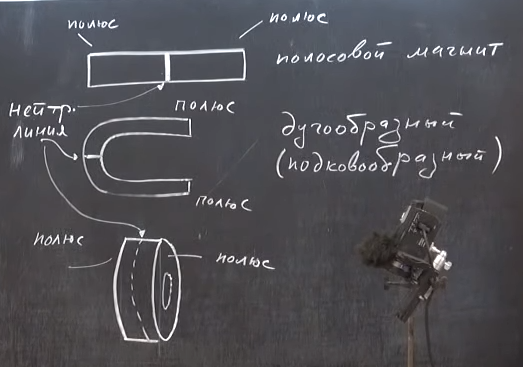 полюс
полюс
полосовой магнит
нейтр.
линия
полюс
дугообразный
(подковообразный)
полюс
полюс
полюс